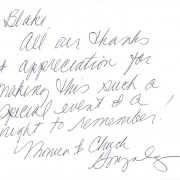 Blake,
All our thanks
+ appreciation for
making this such a
special event & a
night to remember!
Monica & Chuck
Gonzalez